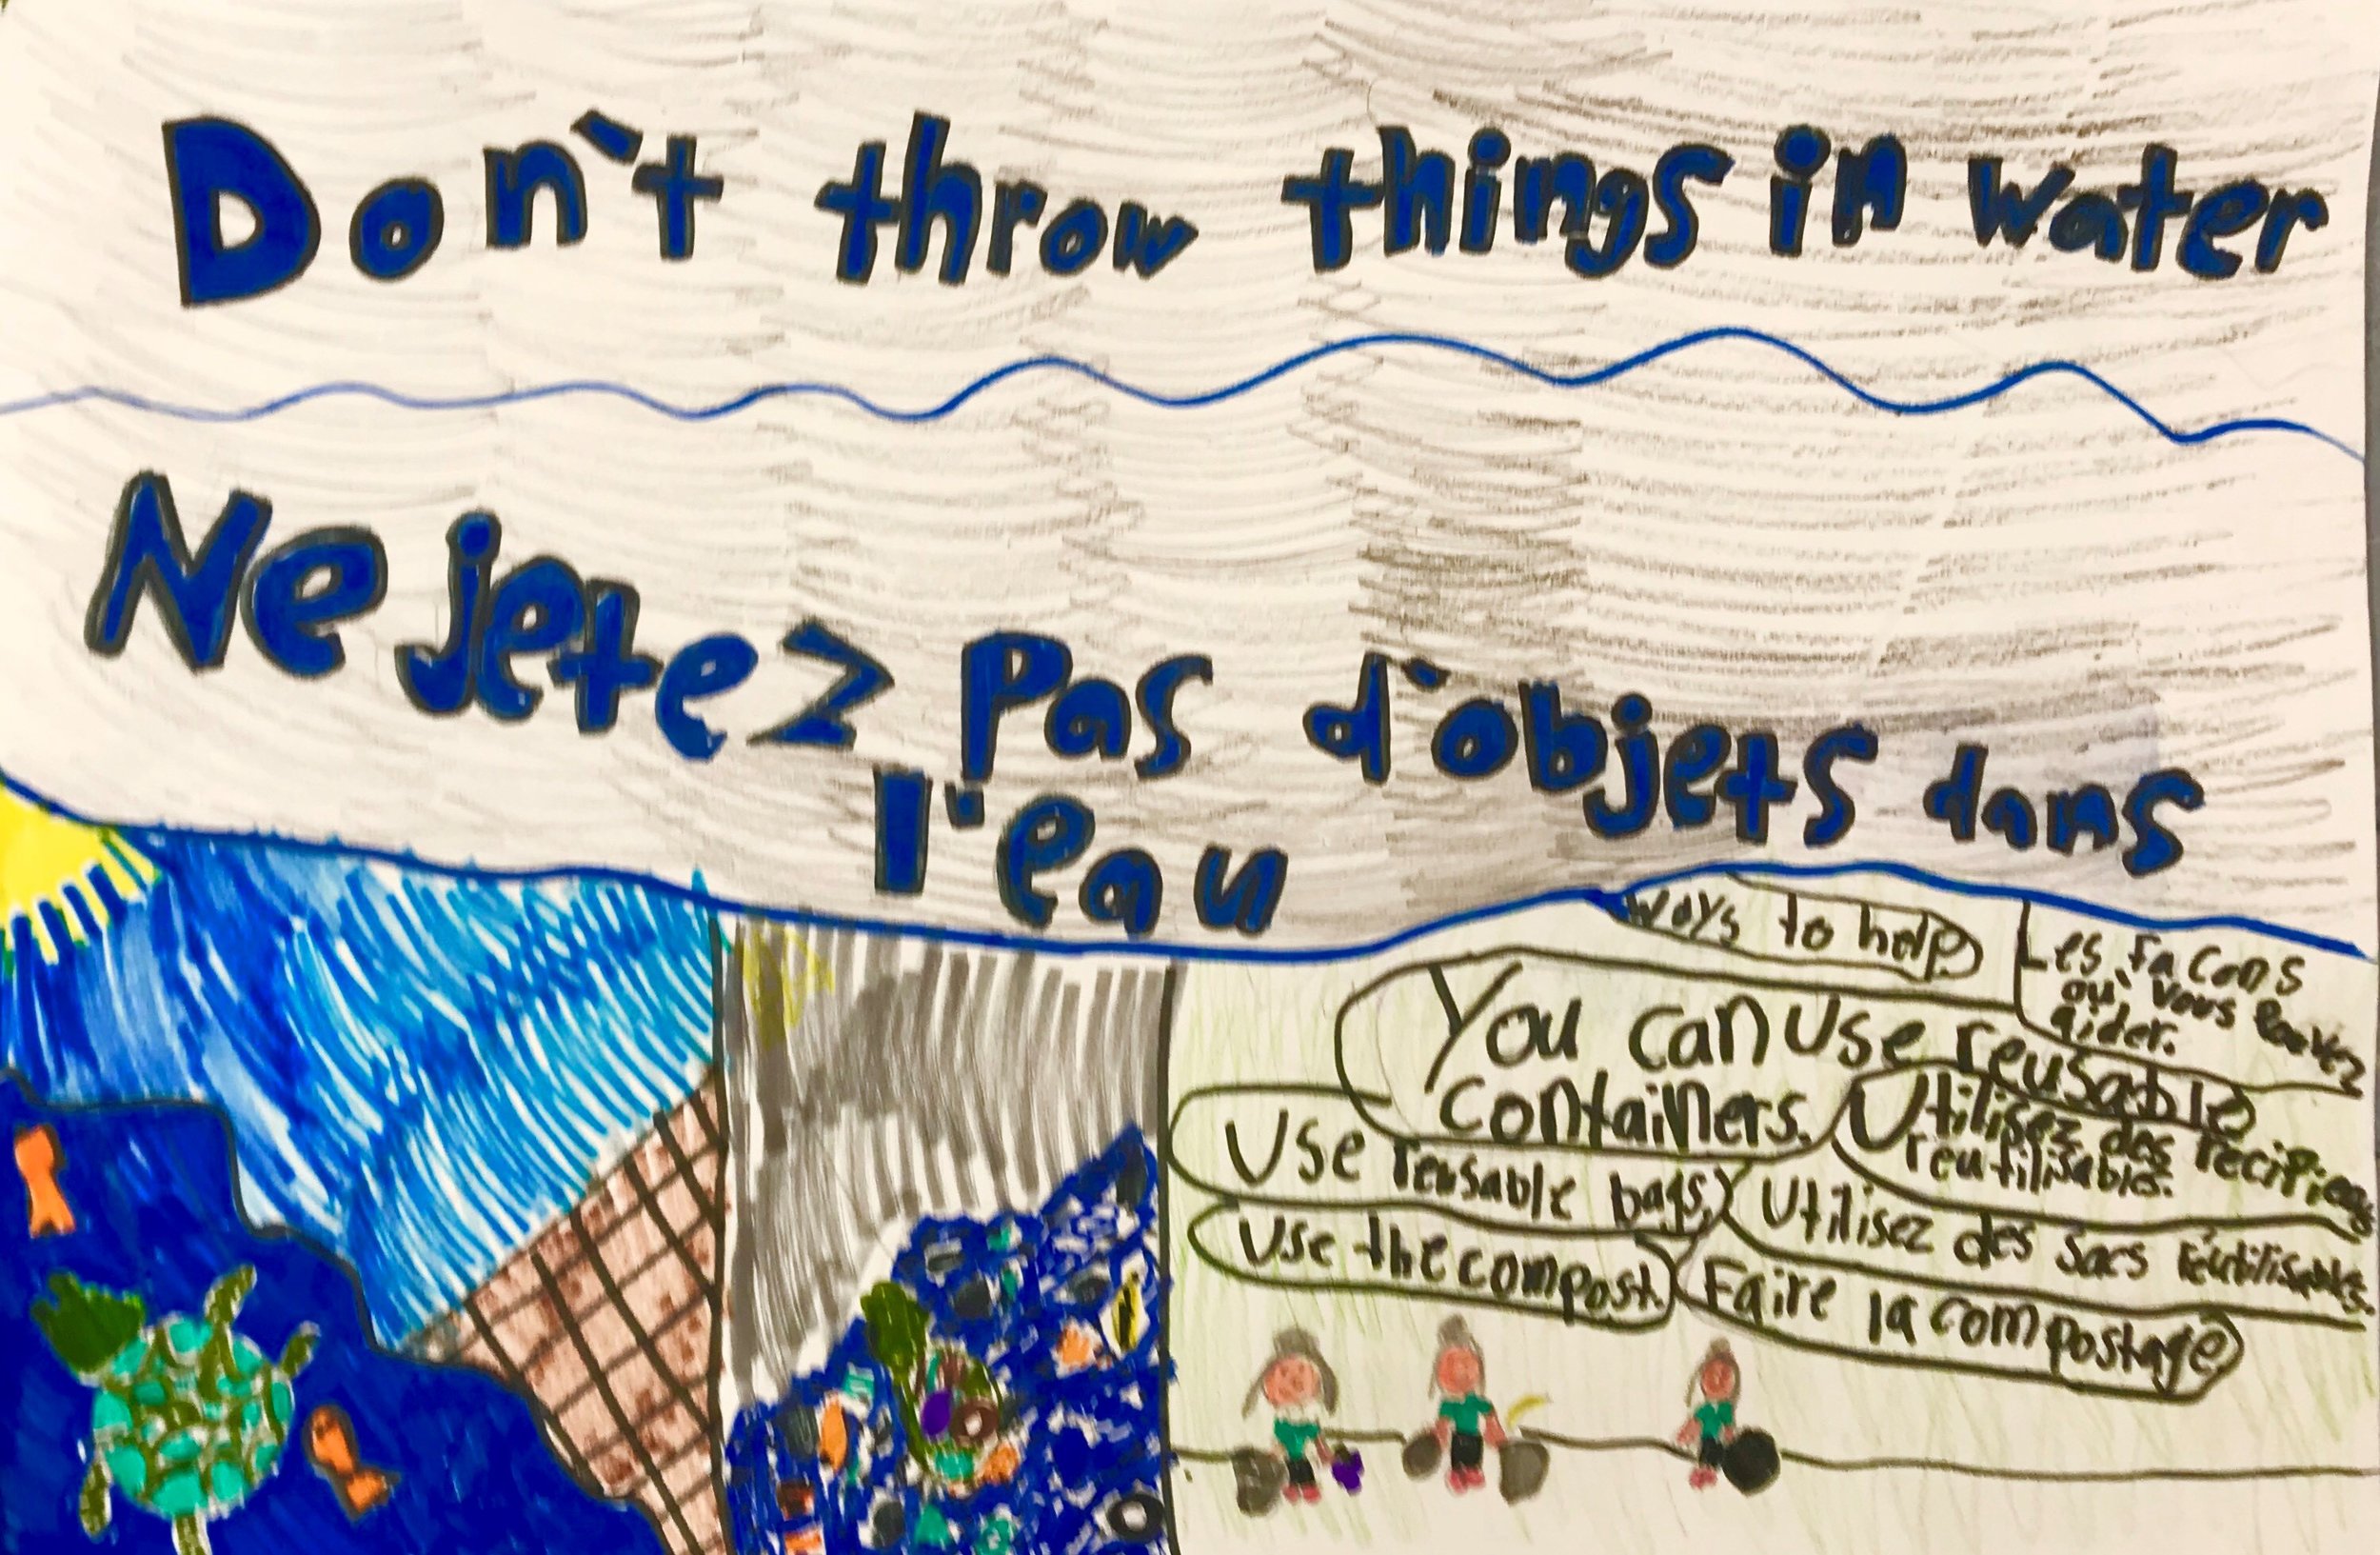 Don't throw things in water
Ne jetez Pas d'objets dans
l'eau
ways to help
Les facons
où vous
aider.
You can use reusable
containers.
Utilisez des recipiens
reutilisables.
Use reusable bags,
Utilisez des sacs réutilisables.
Use the compost.
Faire la compostage